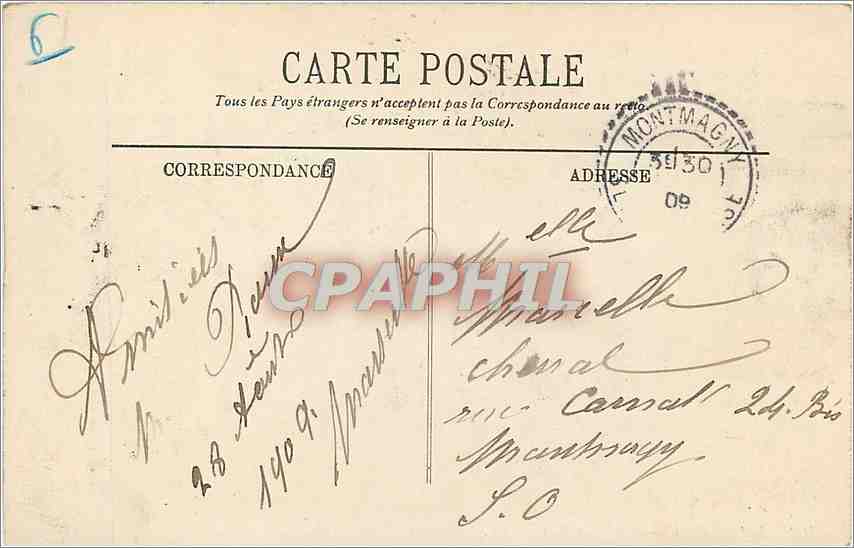 6
CARTE POSTALE
Tous les Pays étrangers n'acceptent pas la Correspondance au recto.
(Se renseigner à la Poste).
CORRESPONDANCE
ADRESSE
MONTMAGNY
30
09
CPAPHIL
Amitiés
28
1909. Marseille
Melle
Marcelle
Cheval
rue Carnot 24. Bis
Montmagny
S. O